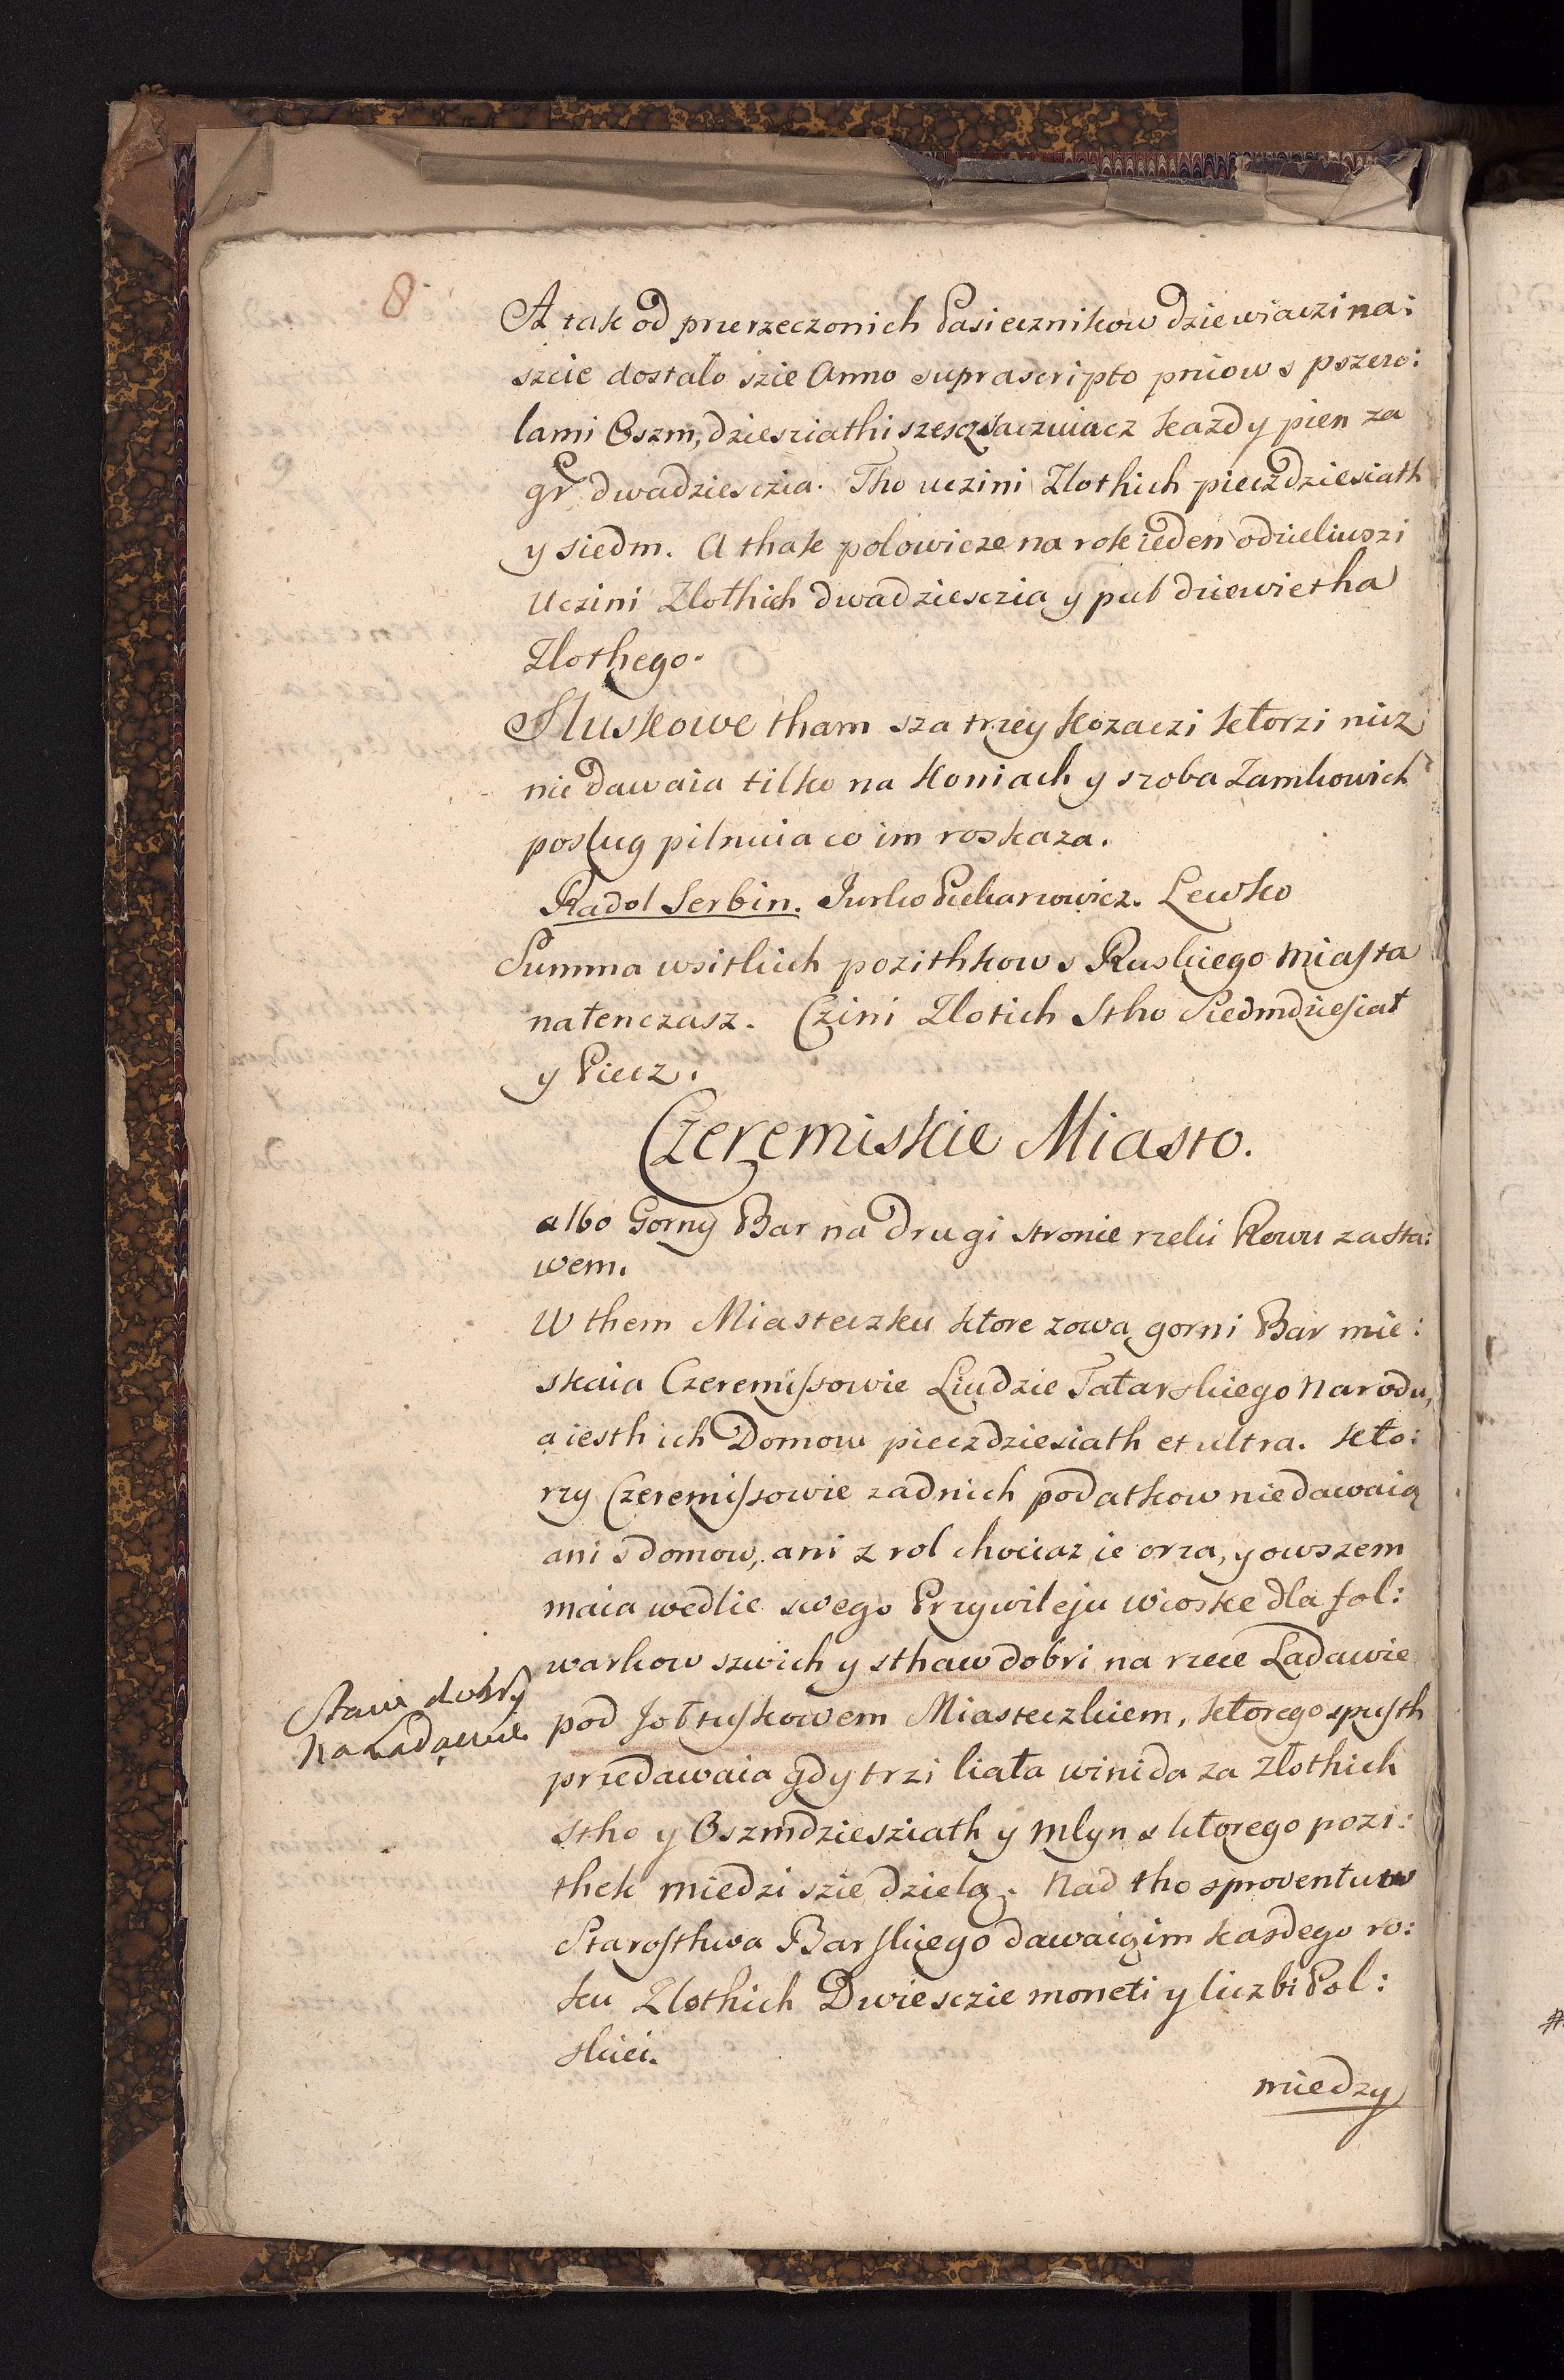 8
A tak od przerzeczonich Pasiecznikow dziewiaczi na:
szcie dostało szie Anno suprascripto pniow s pszczo:
lami Oszm, dziesziathi szescz każdy pien za
gr dwadziesczia. Tho uczini Zlothich pieczdziesiath
y siedm. A thak polowicze na rok ieden odzieliwszi
Uczini Zlothich dwadziesczia y pul dziewietha
Zlothego.
Sluskowe tham sza trzey Kozaczi ktorzi nicz
nie dawaia tilko na koniach y szoba Zamkowich
poslug pilnuia co im roskaza.
Radol Serbin. Jurko Piekarzowicz. Lewko
Summa wsitkich pozithkow s Ruskiego Miasta
natenczasz. Czini Zlotich Stho Siedmdziesiat
y Piecz.
Czeremiskie Miasto.
albo Gorny Bar na drugi stronie rzeki Rowu za sta:
wem.
W them Miasteczku ktore zową gorni Bar mie:
skaia Czeremissowie Liudzie Tatarskiego Narodu,
a iesth ich Domow pieczdziesiath et ultra. kto:
rzy Czeremissowie zadnich podatkow niedawaią
ani s domow, ani z rol chociaz ie orza, y owszem
maia wedlie swego Przywileju wioske dla fol:
warkow szwich y sthaw dobri na rzece Ladawie
Staw dobry
na Ladawie
pod Joltuskowem Miasteczkiem, ktorego spusth
przedawaia gdy trzi liata winida za Złothich
stho y Oszmdziesziath y Mlyn s ktorego pozi:
thek miedzi szie dzielą. Nad tho sproventuw
Starosthwa Barskiego dawaią im kasdego ro:
ku Zlothich Dwiesczie moneti y liczbi Pol:
skiei.
miedzy